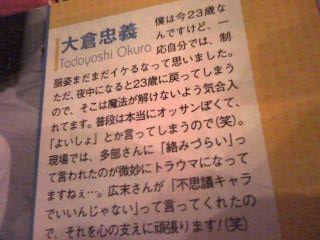 大倉忠義
Tadayoshi Okura
僕は今23歳な
んですけど、一
応自分では、制
服姿まだまだイケるなって思いました。
ただ、夜中になると23歳に戻ってしまう
ので、そこは魔法が解けないよう気合入
れてます。普段は本当にオッサンぽくて、
「よいしょ」とか言ってしまうので(笑)。
現場では、多部さんに「絡みづらい」っ
て言われたのが微妙にトラウマになって
ますねぇ…。広末さんが「不思議キャラ
でいいんじゃない」って言ってくれたの
で、それを心の支えに頑張ります!(笑)